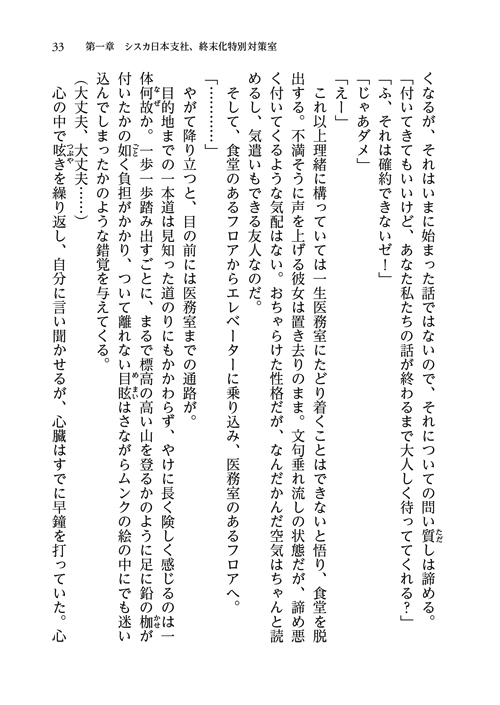 33　第一章　シスカ日本支社、終末化特別対策室
くなるが、それはいまに始まった話ではないので、それについての問い質しは諦める。
「付いてきてもいいけど、あなた私たちの話が終わるまで大人しく待っててくれる？」
「ふ、それは確約できないゼ！」
「じゃあダメ」
「えー」
　これ以上理緒に構っていては一生医務室にたどり着くことはできないと悟り、食堂を脱
出する。不満そうに声を上げる彼女は置き去りのまま。文句垂れ流しの状態だが、諦め悪
く付いてくるような気配はない。おちゃらけた性格だが、なんだかんだ空気はちゃんと読
めるし、気遣いもできる友人なのだ。
　そして、食堂のあるフロアからエレベーターに乗り込み、医務室のあるフロアへ。
「…………」
　やがて降り立つと、目の前には医務室までの通路が。
　目的地までの一本道は見知った道のりにもかかわらず、やけに長く険しく感じるのは一
体何故か。一歩一歩踏み出すごとに、まるで標高の高い山を登るかのように足に鉛の枷が
付いたかの如く負担がかかり、ついて離れない目眩はさながらムンクの絵の中にでも迷い
込んでしまったかのような錯覚を与えてくる。
（大丈夫、大丈夫……）
　心の中で呟きを繰り返し、自分に言い聞かせるが、心臓はすでに早鐘を打っていた。心